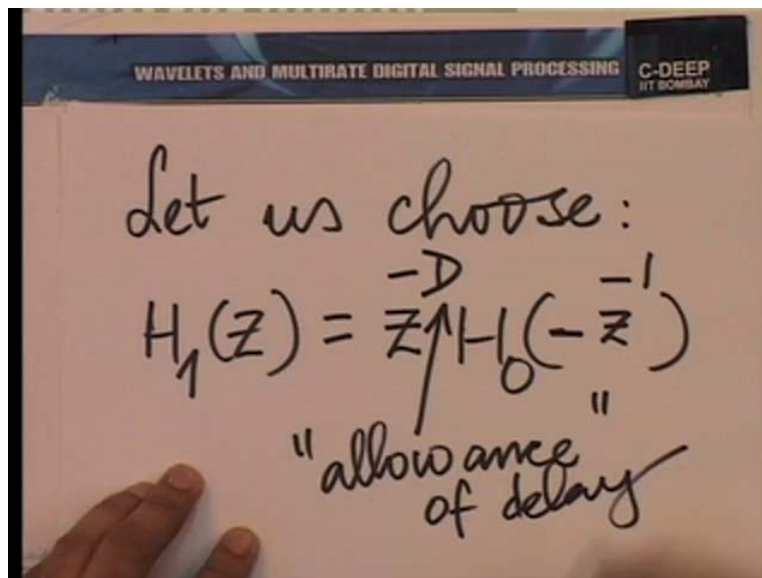 WAVELETS AND MULTIRATE DIGITAL SIGNAL PROCESSING
C-DEEP
IIT BOMBAY
Let us choose:
H₁(Z) = z⁻ᴰ H₀(-z⁻¹)
"allowance"
of delay